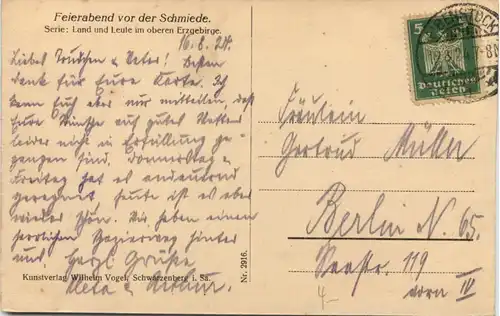 Feierabend vor der Schmiede.
Serie: Land und Leute im oberen Erzgebirge.
16.8.24.
Liebes Trudchen & Vater! Besten
Dank für Eure Karte. Ich
kann Euch aber nur mitteilen, daß
Eure Wünsche auf gutes Wetter
leider nicht in Erfüllung ge-
gangen sind. Donnerstag &
Freitag hat es andauernd
geregnet heute ist es aber
wieder schön. Wir haben einen
herrlichen Spazierweg hinter
uns. Herzl. Grüße
Meta &
Kunstverlag Wilhelm Vogel, Schwarzenberg i. Sa.
Nr. 2916.
5
Deutsches
Reich
Fräulein
Gertrud Müller
Berlin N. 65.
119
vorn IV
4-